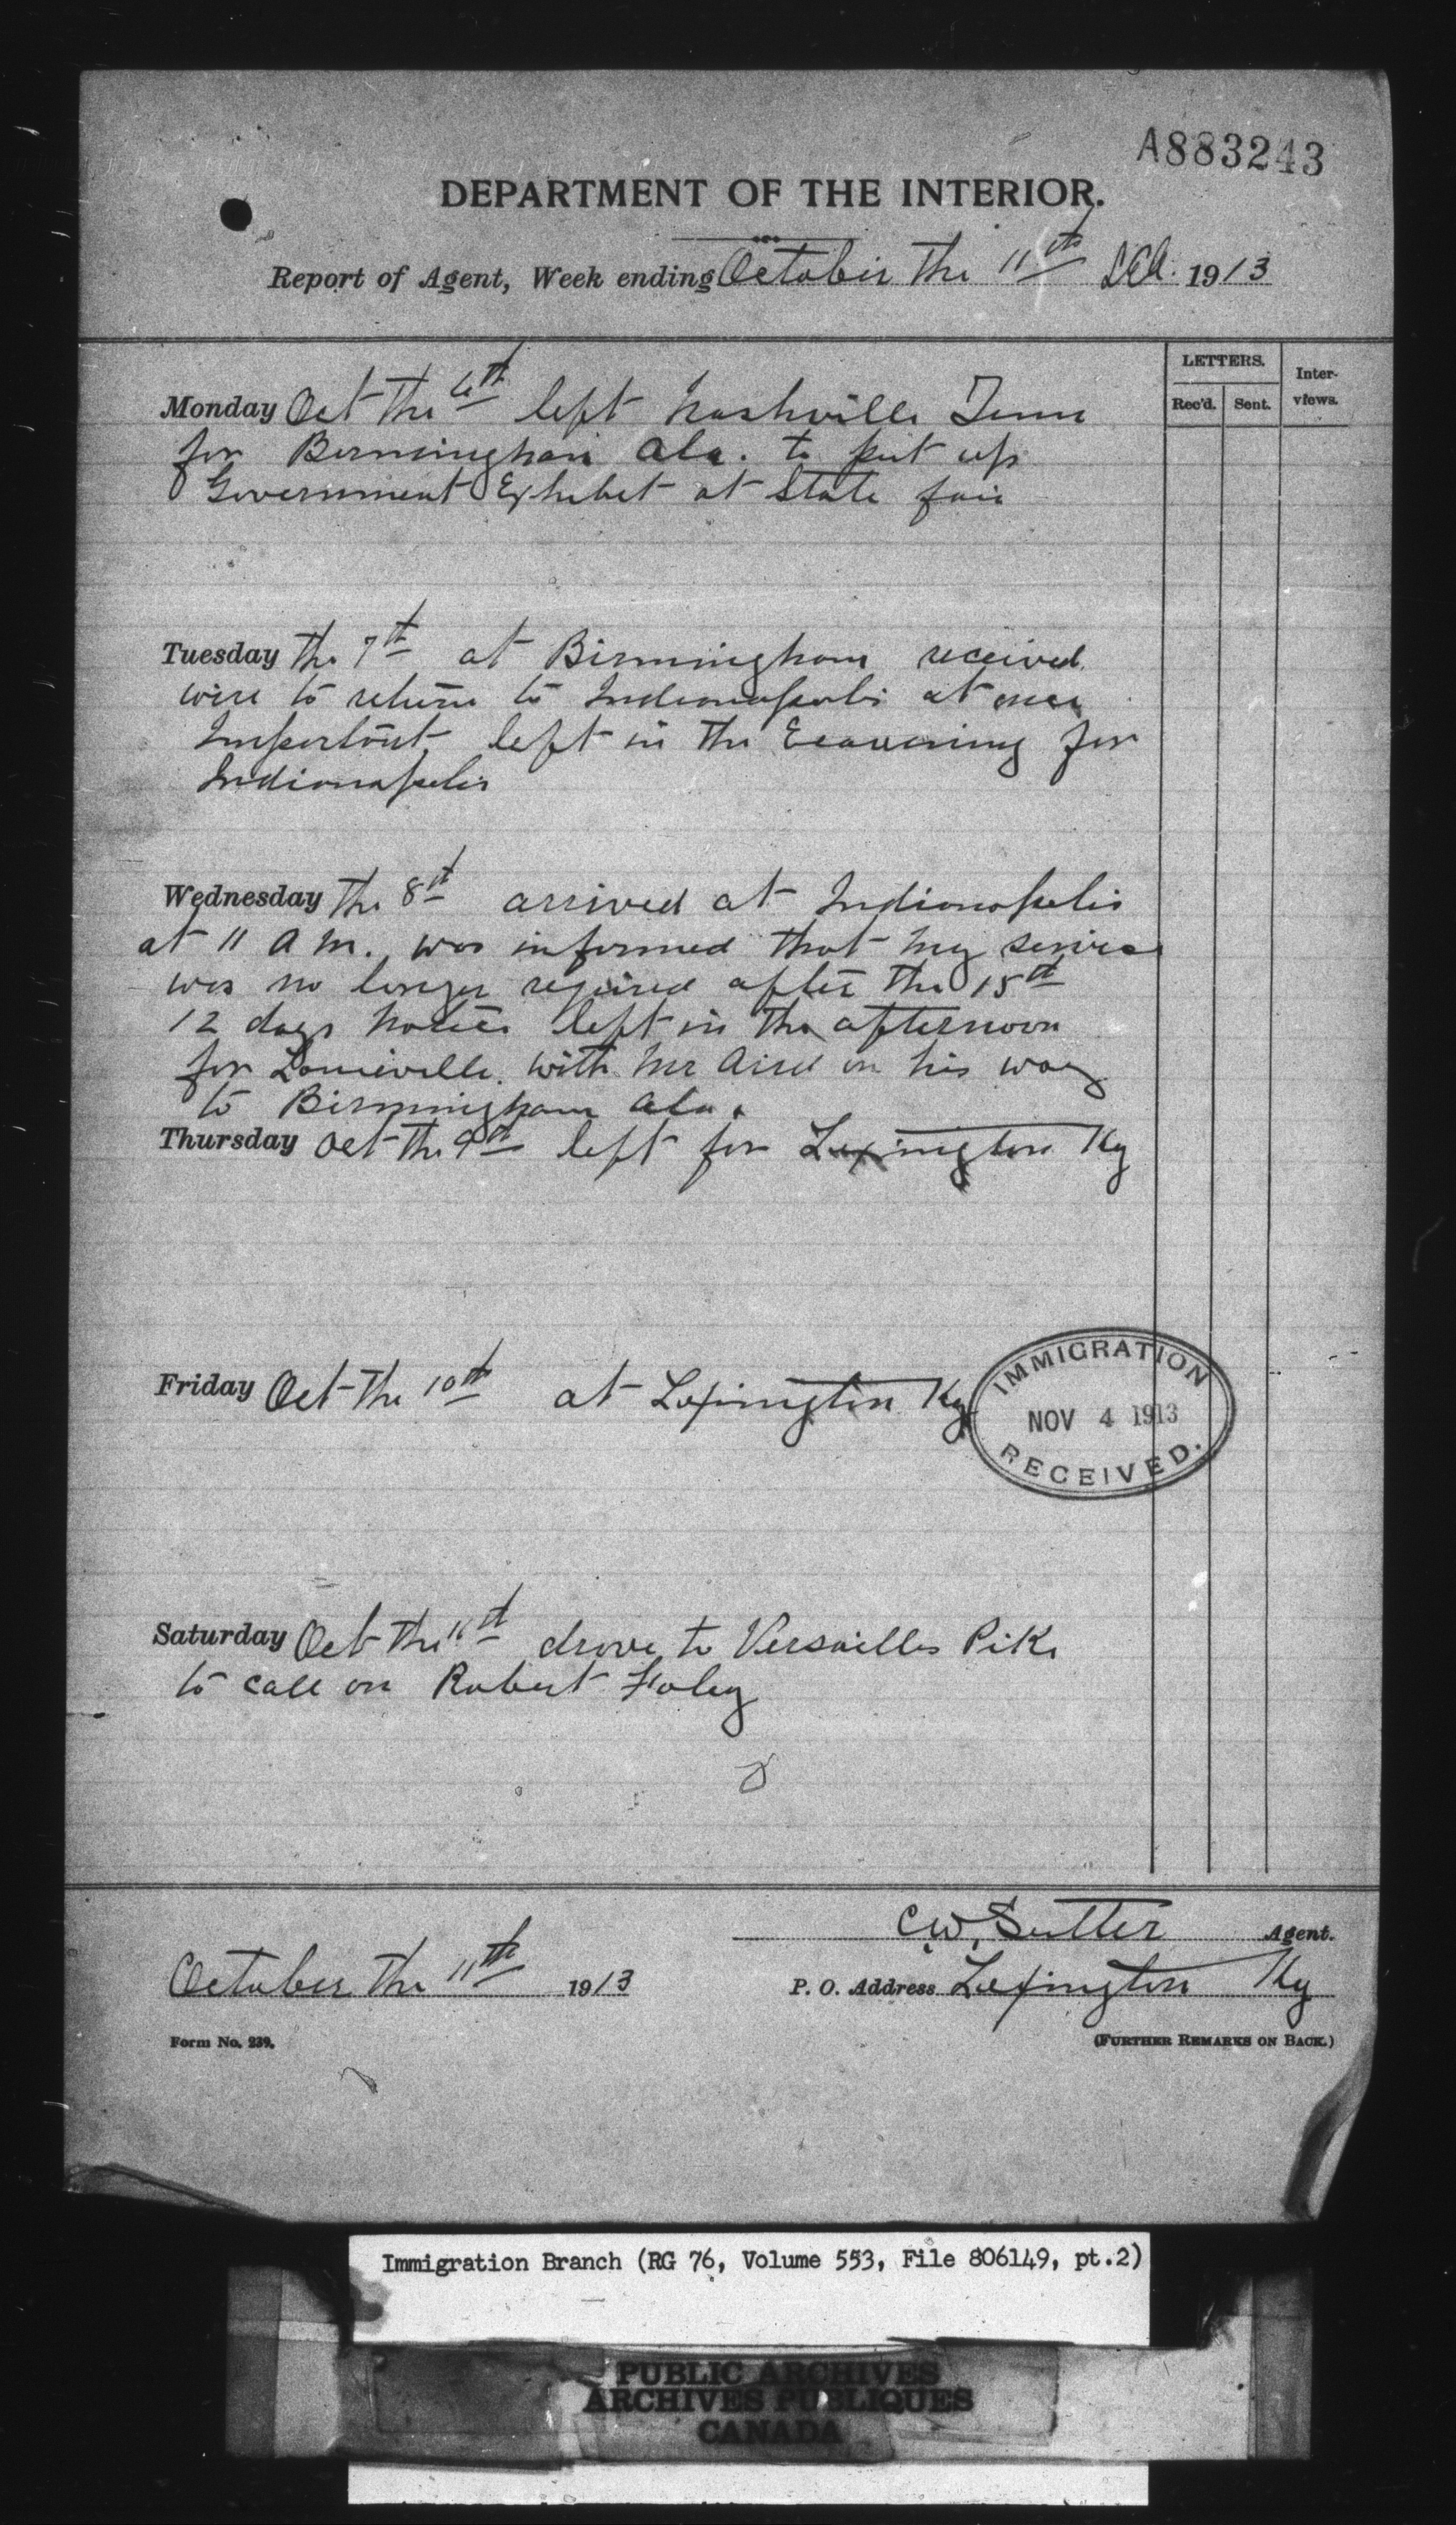 A883243
DEPARTMENT OF THE INTERIOR.
Report of Agent, Week ending October the 11th 1913
LETTERS.
Rec'd. Sent.
Inter-
views.
Monday Oct the 6th left Nashville Tenn
for Birmingham Ala. to put up
Government Exhibet at State fair
Tuesday the 7th at Birmingham received
wire to return to Indianapolis at once
Important left in the Eeavening for
Indianapolis
Wednesday the 8th arrived at Indianapolis
at 11 A M. was informed that my service
was no longer required after the 15th
12 days notice left in the afternoon
for Louieville. with Mr Aird on his way
to Birmingham Ala.
Thursday Oct the 9th left for Lexington Ky
Friday Oct the 10th at Lexington Ky
IMMIGRATION
NOV 4 1913
RECEIVED.
Saturday Oct the 11th drove to Versailles Pike
to call on Robert Foley
C.W. Sutter Agent.
October the 11th 1913
P. O. Address Lexington Ky
Form No. 239.
(FURTHER REMARKS ON BACK.)
Immigration Branch (RG 76, Volume 553, File 806149, pt.2)
PUBLIC ARCHIVES
ARCHIVES PUBLIQUES
CANADA